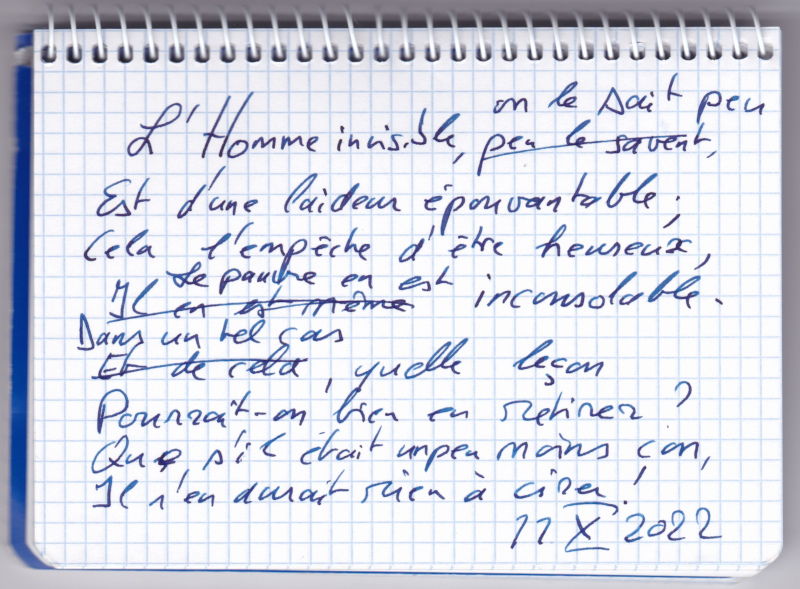 on le sait peu
L'Homme invisible, peu le savent,
Est d'une laideur épouvantable ;
Cela l'empêche d'être heureux,
Le pauvre en est
Il en est même inconsolable.
Dans un tel cas
Et de cela, quelle leçon
Pourrait-on bien en retirer ?
Que, s'il était un peu moins con,
Il n'en aurait rien à cirer !
11 X 2022